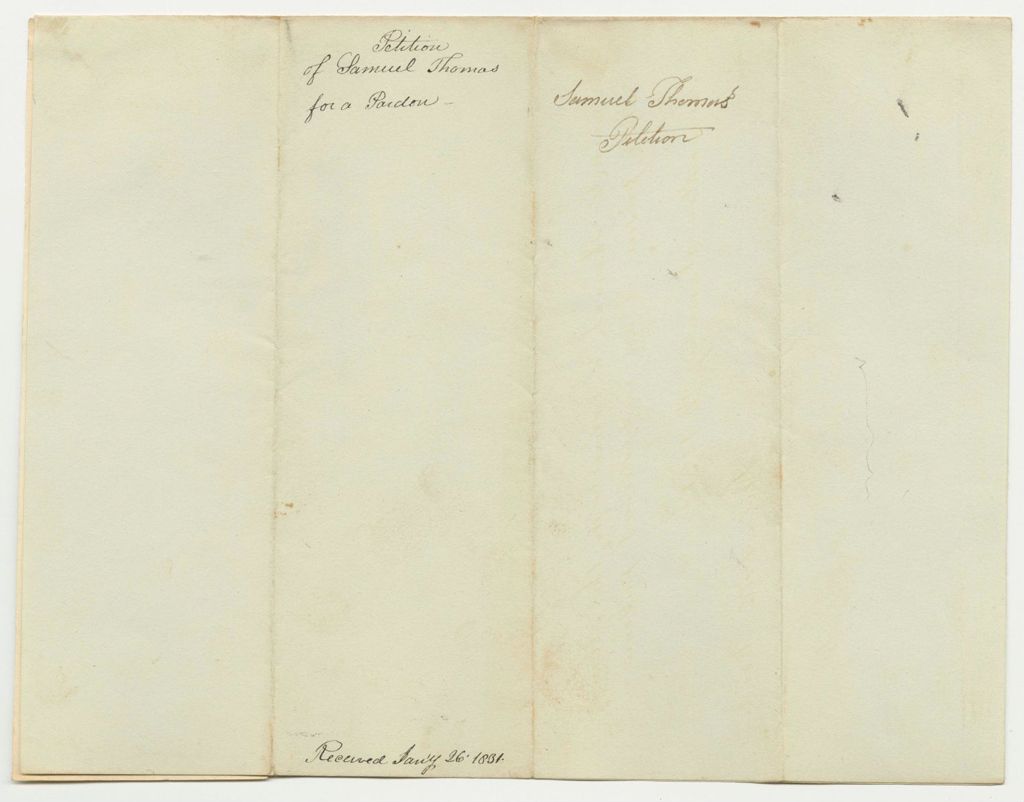 Petition
of Samuel Thomas
for a Pardon –
Received Jan'y 26' 1831.
Samuel Thomas's
Petition